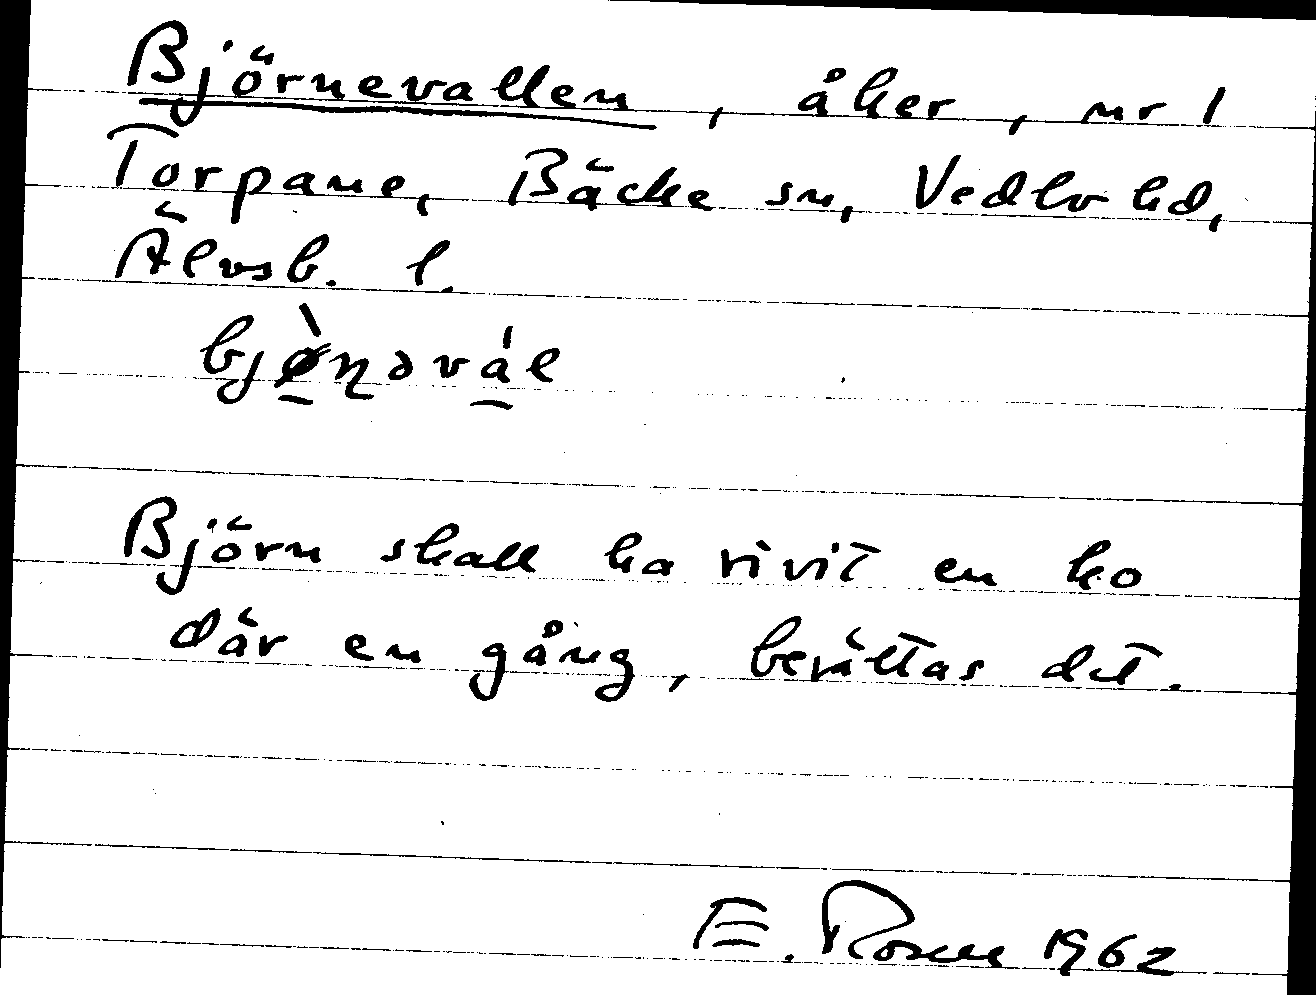 Björnevallen, åker, nr 1
Torpane, Bäcke sn, Vedbo hd,
Älvsb. l.
Björn skall ha rivit en ko
där en gång, berättas det.
E. Rosell 1962